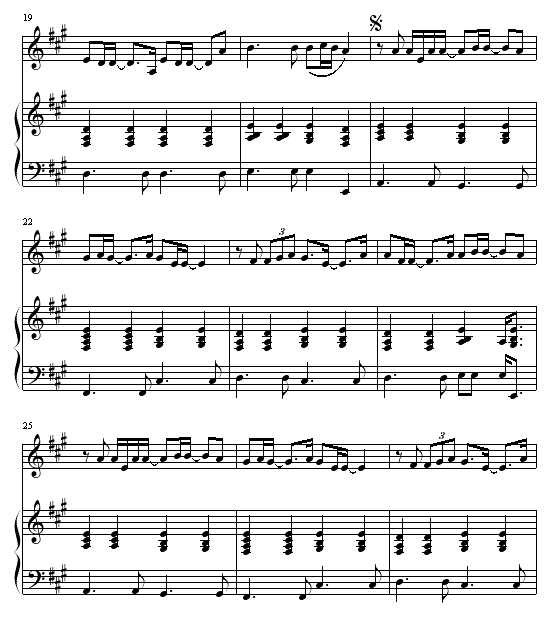 19
22
3
25
3